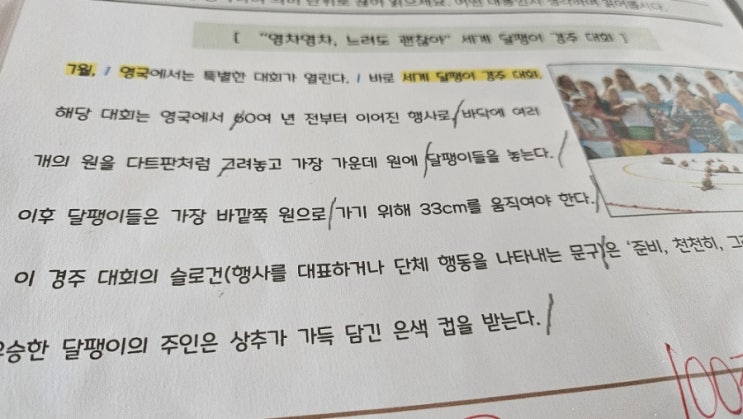 [ "영차영차, 느려도 괜찮아" 세계 달팽이 경주 대회 ]
7월, / 영국에서는 특별한 대회가 열린다. / 바로 세계 달팽이 경주 대회.
해당 대회는 영국에서 60여 년 전부터 이어진 행사로/바닥에 여러
개의 원을 다트판처럼 그려놓고 가장 가운데 원에/달팽이들을 놓는다./
이후 달팽이들은 가장 바깥쪽 원으로/가기 위해 33cm를 움직여야 한다./
이 경주 대회의 슬로건(행사를 대표하거나 단체 행동을 나타내는 문구)은 '준비, 천천히,
우승한 달팽이의 주인은 상추가 가득 담긴 은색 컵을 받는다./
100